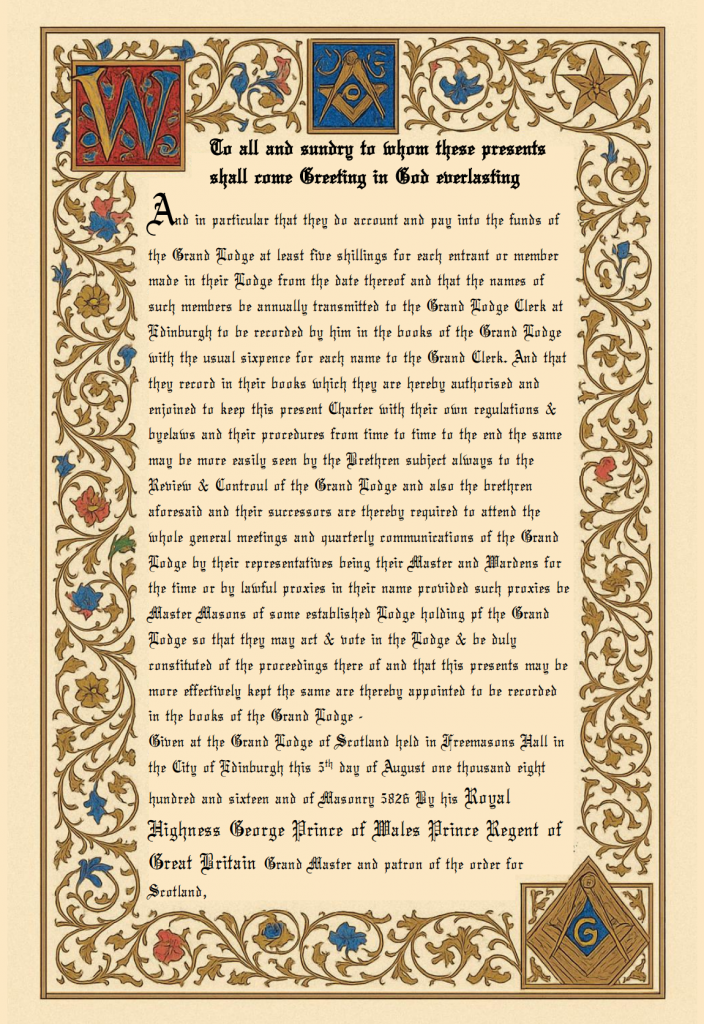 W
G
To all and sundry to whom these presents
shall come Greeting in God everlasting
And in particular that they do account and pay into the funds of
the Grand Lodge at least five shillings for each entrant or member
made in their Lodge from the date thereof and that the names of
such members be annually transmitted to the Grand Lodge Clerk at
Edinburgh to be recorded by him in the books of the Grand Lodge
with the usual sixpence for each name to the Grand Clerk. And that
they record in their books which they are hereby authorised and
enjoined to keep this present Charter with their own regulations &
byelaws and their procedures from time to time to the end the same
may be more easily seen by the Brethren subject always to the
Review & Controul of the Grand Lodge and also the brethren
aforesaid and their successors are thereby required to attend the
whole general meetings and quarterly communications of the Grand
Lodge by their representatives being their Master and Wardens for
the time or by lawful proxies in their name provided such proxies be
Master Masons of some established Lodge holding pf the Grand
Lodge so that they may act & vote in the Lodge & be duly
constituted of the proceedings there of and that this presents may be
more effectively kept the same are thereby appointed to be recorded
in the books of the Grand Lodge -
Given at the Grand Lodge of Scotland held in Freemasons Hall in
the City of Edinburgh this 5th day of August one thousand eight
hundred and sixteen and of Masonry 5826 By his Royal
Highness George Prince of Wales Prince Regent of
Great Britain Grand Master and patron of the order for
Scotland,
G